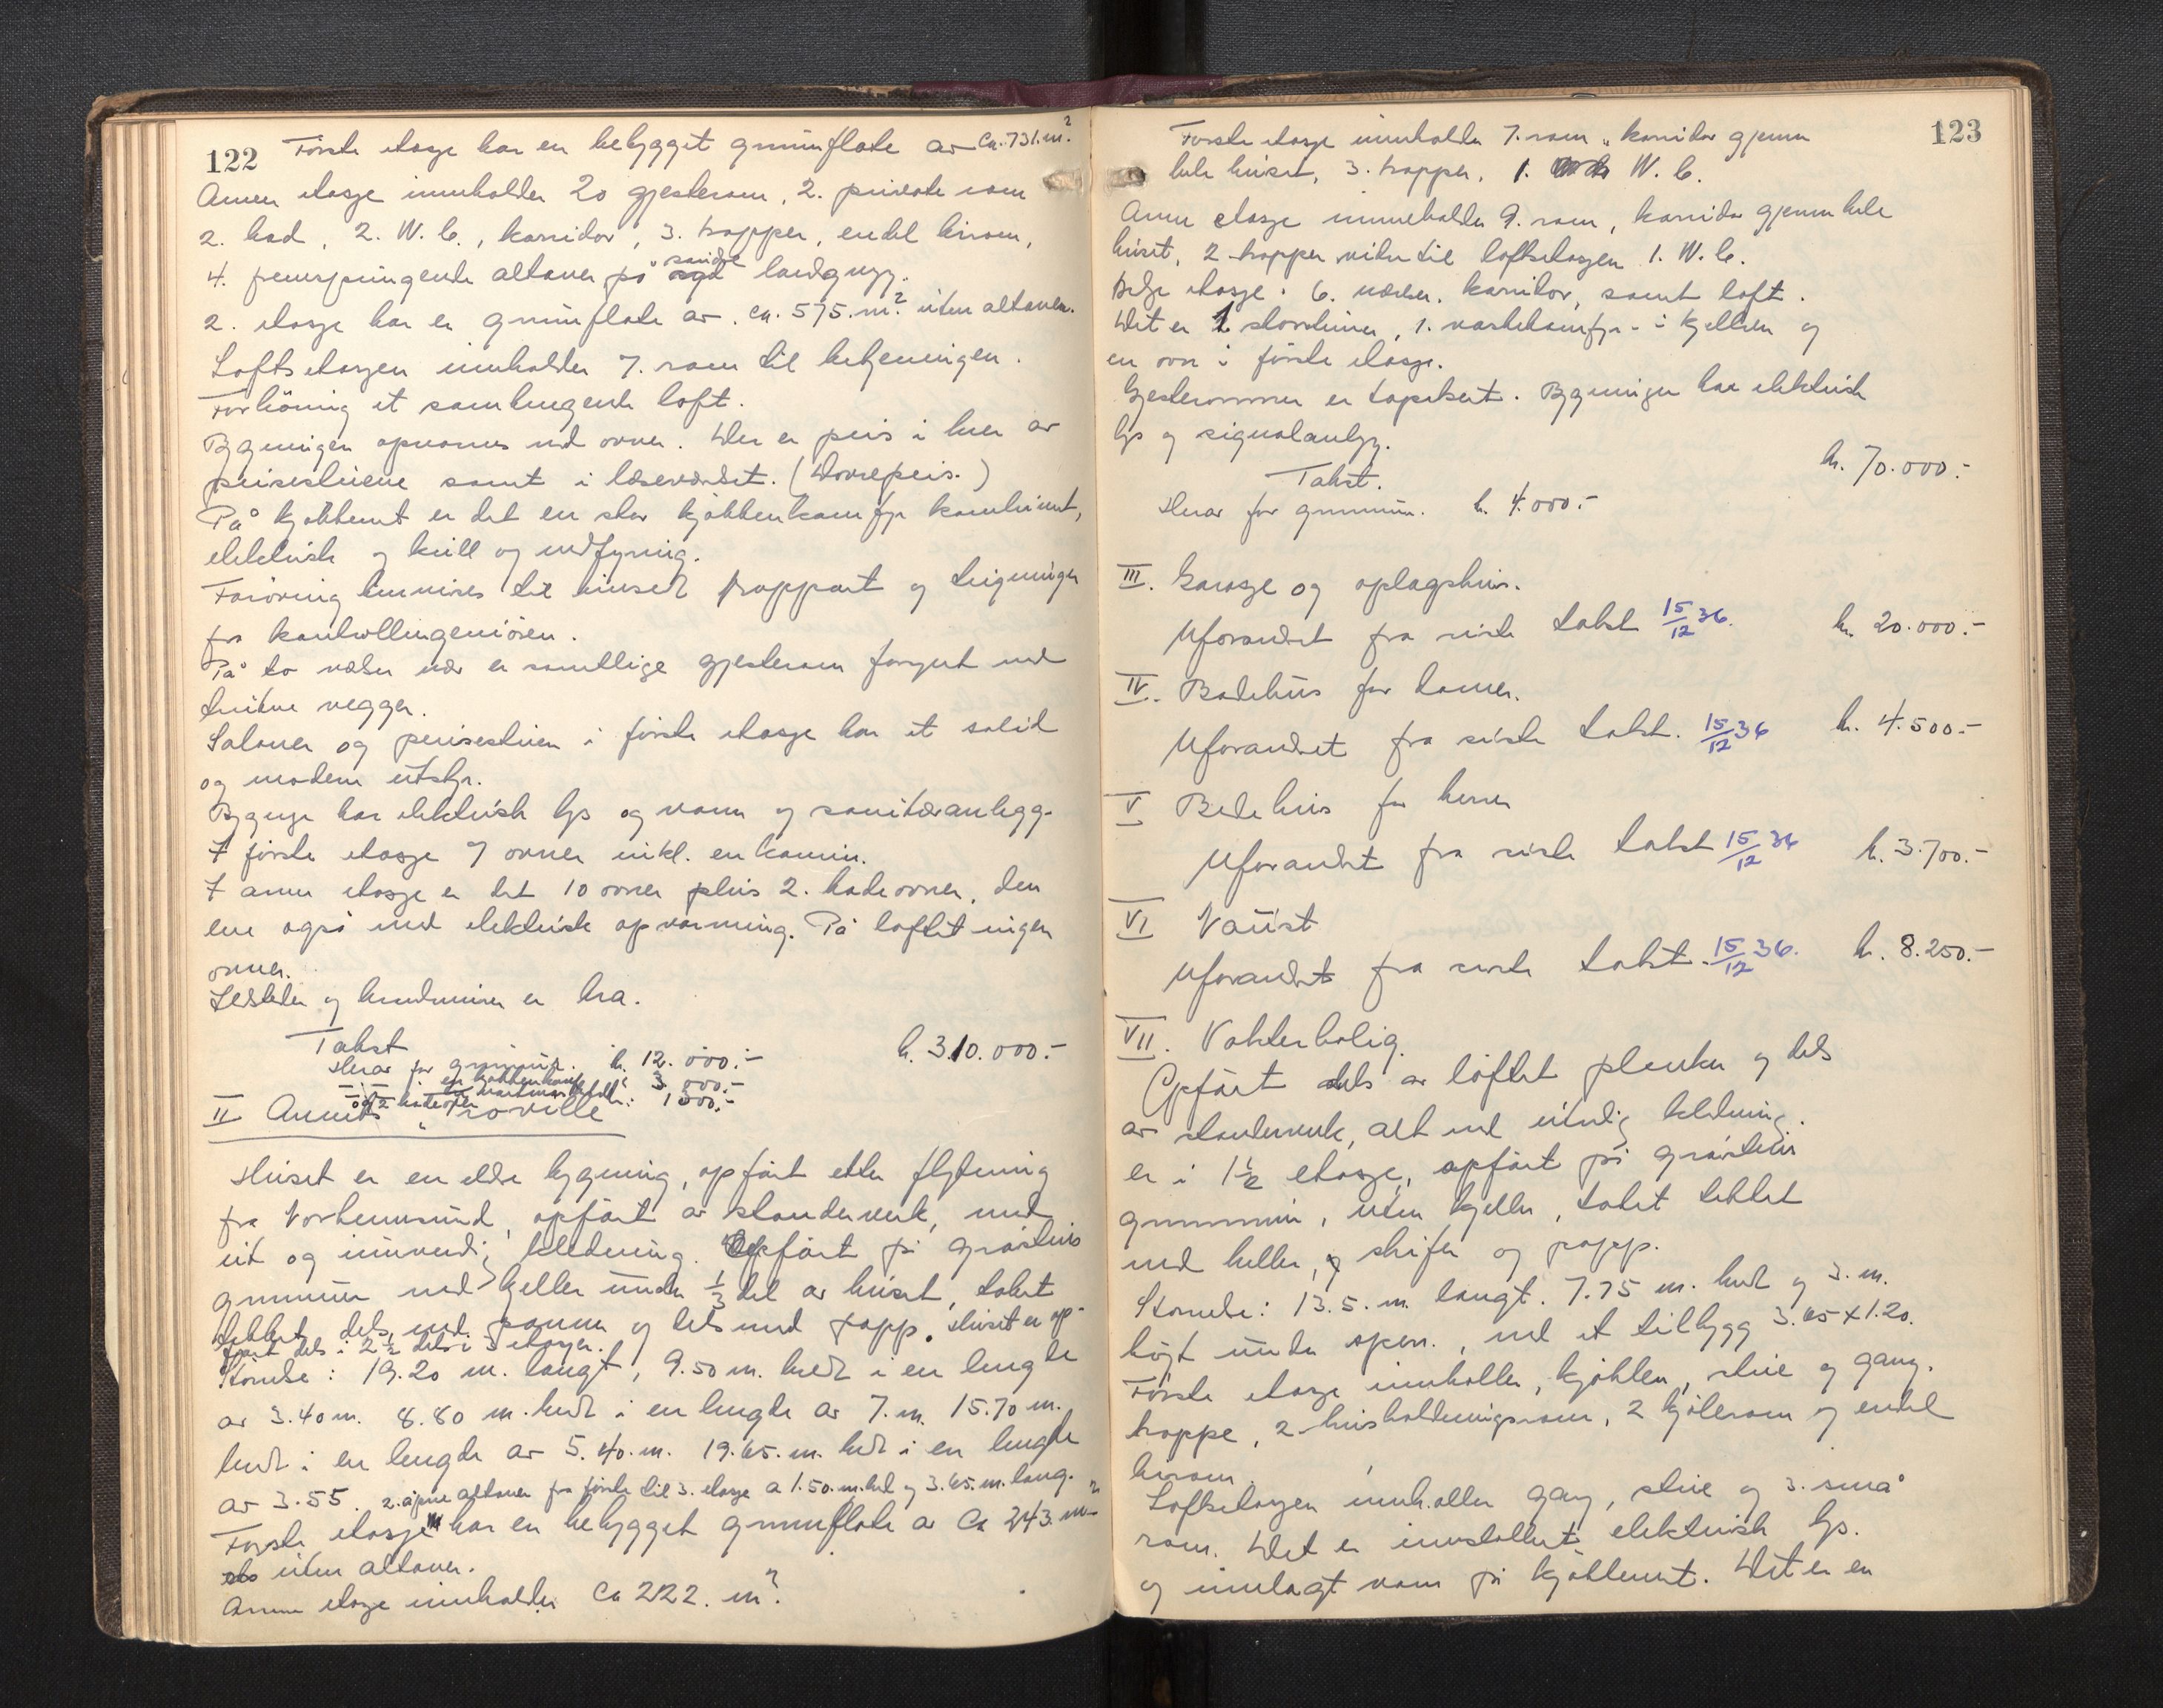 122
Förste etasje har en bebygget grunnflate av ca. 731. m²
Annen etasje innholder 20 gjesterom, 2. private rom
2. bad, 2. W. C., korridor, 3. trapper, endel birom,
4. fremspringende altaner på søndre landgrygg.
2. etasje har en grunnflate av ca. 575. m² uten altanen.
Loftsetasjen innholder 7. rom til betjeningen.
Forövrig et samhengende loft.
Bygningen opvarmes ved ovner. Der er peis i hver av
peisestuene samt i læseværelset. (Dovrepeis.)
På kjökkenet er det en stor kjökkenkomfyr kombinert,
elektrisk og kull og vedfyring.
Forövrig henvises til huset rapport og tegninger
fra kontrollingeniören.
På to nær er samtlige gjesterom forsynt med
trukne vegger.
Saloner og peisestuen i förste etasje har et solid
og moderne utstyr.
Bygnge har elektrisk lys og vann og sanitæranlegg.
I förste etasje 7 ovner inkl. en kamin.
I annen etasje er det 10 ovner pluss 2. badeovner, den
ene også med elektrisk opvarming. På loftet ingen
ovner.
Ildsteder og brandmurer er bra.
Takst kr. 310.000.-
Herav for grunnmur. kr. 12.000.-
-"- en kjökkenkomf. " 3.000.-
og 2 badeovner 1500.-
II Anneks "Troville"
Huset er en eldre bygning, opfört etter flytning
fra Norheimsund, opfört av stenderverk, med
ut og innvendig kledning. Opfört på gråstens
grunnmur med kjeller under 1/3 del av huset, taket
tekket dels med panner og dels med papp. Huset er op-
fört dels i 2½ dels i 3 etasjer.
Större: 19.20 m. langt, 9.50 m. bredt i en lengde
av 3.40 m. 8.80 m. bredt i en lengde av 7. m. 15.70 m.
bredt i en lengde av 5.40. m. 19.65. m. bredt i en lengde
av 3.55. 2. åpne altaner fra förste til 3. etasje a 1.50. m. bred og 3.65. m. lang.
Förste etasje har en bebygget grunnflate av ca 243. m²
uten altaner.
Annen etasje innholder ca 222. m²
123
Förste etasje innholder 7. rom, korridor gjennem
hele huset, 3. trapper, 1. W. C.
Annen etasje inneholder 9. rom, korridor gjennem hele
huset, 2 trapper videre til loftsetasjen 1. W. C.
etasje: 6. værelser. korridor, samt loft.
Det er 1, 1. vaskekomfyr- i kjelleren og
en ovn i förste etasje.
Gjesterommene er tapetsert. Bygningen har elektrisk
lys og signalanlegg.
Takst. kr. 70.000.-
Herav for grunnmur. kr. 4.000.-
III. Garasje og oplagshus.
Uforandret fra siste takst 15/12 36. kr. 20.000.-
IV. Badehus for damer.
Uforandret fra siste takst. 15/12 36 kr. 4.500.-
V Badehus for herrer
Uforandret fra siste takst 15/12 36 kr. 3.700.-
VI Naust
Uforandret fra siste takst. 15/12 36. kr. 8.250.-
VII. Vokterbolig.
Opfört dels av löftet plenker og dels
av stenderverk, alt med utvendig kledning.
er i 1½ etasje, opfört på gråstein
grunnmur, uten kjeller, taket tekket
med heller, skifer og papp.
Större: 13.5. m. langt. 7.75 m. bredt og 3. m.
högt under opsen., med et tilbygg 3.65 x 1.20.
Förste etasje innholder, kjökken, stue og gang.
trappe, 2 husholdningsrom, 2 kjölerom og endel
birom.
Loftsetasjen innholder gang, stue og 3. små
rom. Det er innstallert elektrisk lys.
og innlagt vann på kjökkenet. Det er en